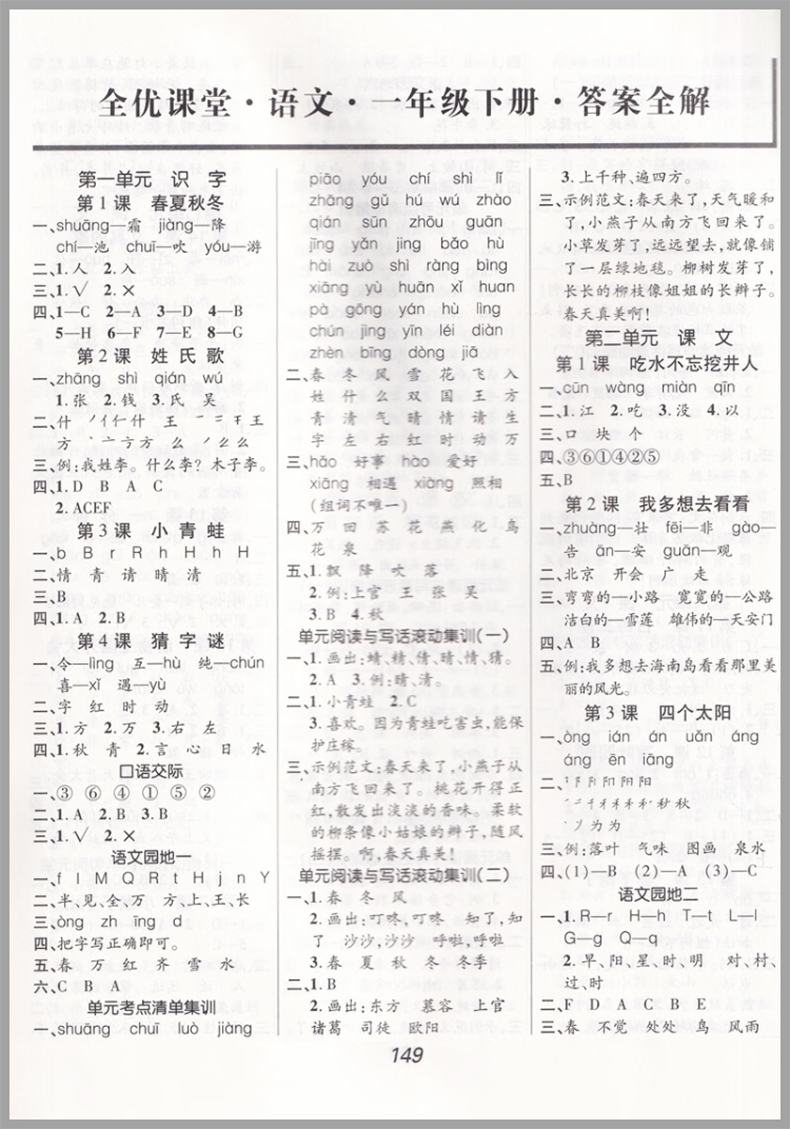 全优课堂·语文·一年级下册·答案全解
第一单元 识 字
第1课 春夏秋冬
一、shuāng—霜 jiàng—降
chí—池 chuī—吹 yóu—游
二、1.人 2.入
三、1.√ 2.×
四、1—C 2—A 3—D 4—B
5—H 6—F 7—E 8—G
第2课 姓 氏 歌
一、zhāng shì qián wú
1.张 2.钱 3.氏 吴
三、例:我姓李。什么李?木子李。
四、1.D B A C
2.ACEF
第3课 小 青 蛙
一、b B r R h H h H
二、情 青 请 晴 清
三、B
四、1.A 2.B
第4课 猜 字 谜
一、令—lìng 互—hù 纯—chún
喜—xǐ 遇—yù
二、字 红 时 动
三、1.方 2.万 3.右 左
四、1.秋 青 2.言 心 日 水
口语交际
一、③ ⑥ ④ ① ⑤ ②
二、1.A 2.B 3.B
三、1.√ 2.×
语文园地一
一、f I M Q R t H j n Y
二、半、见、全、万 方、上、王、长
三、òng zh īng d
四、把字写正确即可。
五、春 万 红 齐 雪 水
六、C B A
单元考点清单集训
一、shuāng chuī luò jiàng
piāo yóu chí shì lǐ
zhāng gǔ hú wú zhào
qián sūn zhōu guān
jīng yǎn jing bǎo hù
hài zuò shì ràng bìng
xiāng yù huān xǐ huan
pà gōng yán hù lìng
chún jìng yīn léi diàn
zhèn bīng dòng jiā
二、春 冬 风 雪 花 飞 入
姓 什 么 双 国 王 方
青 清 气 晴 情 请 生
字 左 右 红 时 动 万
三、hǎo 好事 hào 爱好
xiāng 相遇 xiàng 照相
(组词不唯一)
四、万 回 苏 花 燕 化 鸟
花 泉
五、1.飘 降 吹 落
2.例:上官 王 张 吴
3.B 4.秋
单元阅读与写话滚动集训(一)
一、1.画出:蜻、精、倩、晴、情、猜。
2.A 3.例:晴、清。
二、1.小青蛙 2.C
3.喜欢。因为青蛙吃害虫,能保
护庄稼。
三、示例范文:春天来了,小燕子从
南方飞回来了。桃花开得正
红,散发出淡淡的香味。柔软
的柳条像小姑娘的辫子,随风
摇摆。啊,春天真美!
单元阅读与写话滚动集训(二)
一、1.春 冬 风
2.画出:叮咚,叮咚 知了,知
了 沙沙,沙沙 呼啦,呼啦
3.春 夏 秋 冬 冬季
二、1.B
2.画出:东方 慕容 上官
诸葛 司徒 欧阳
3.上千种、遍四方。
三、示例范文:春天来了,天气暖和
了,小燕子从南方飞回来了。
小草发芽了,远远望去,就像铺
了一层绿地毯。柳树发芽了,
长长的柳枝像姐姐的长辫子。
春天真美啊!
第二单元 课 文
第1课 吃水不忘挖井人
一、cūn wàng miàn qīn
二、1.江 2.吃 3.没 4.以
三、口 块 个
四、③⑥①④②⑤
五、B
第2课 我多想去看看
一、zhuàng—壮 fēi—非 gào—
告 ān—安 guān—观
二、北京 开会 广 走
三、弯弯的—小路 宽宽的—公路
洁白的—雪莲 雄伟的—天安门
四、A
五、例:我多想去海南岛看看那里美
丽的风光。
第3课 四个太阳
一、òng ián án uǎn áng
áng ēn iāng
三、例:落叶 气味 图画 泉水
四、(1)—B (2)—A (3)—C
语文园地二
一、1.R—r H—h T—t L—l
G—g Q—q
2.早、阳、星、时、明 对、村、
过、时
二、F D A C B E
三、春 不觉 处处 鸟 风雨
149